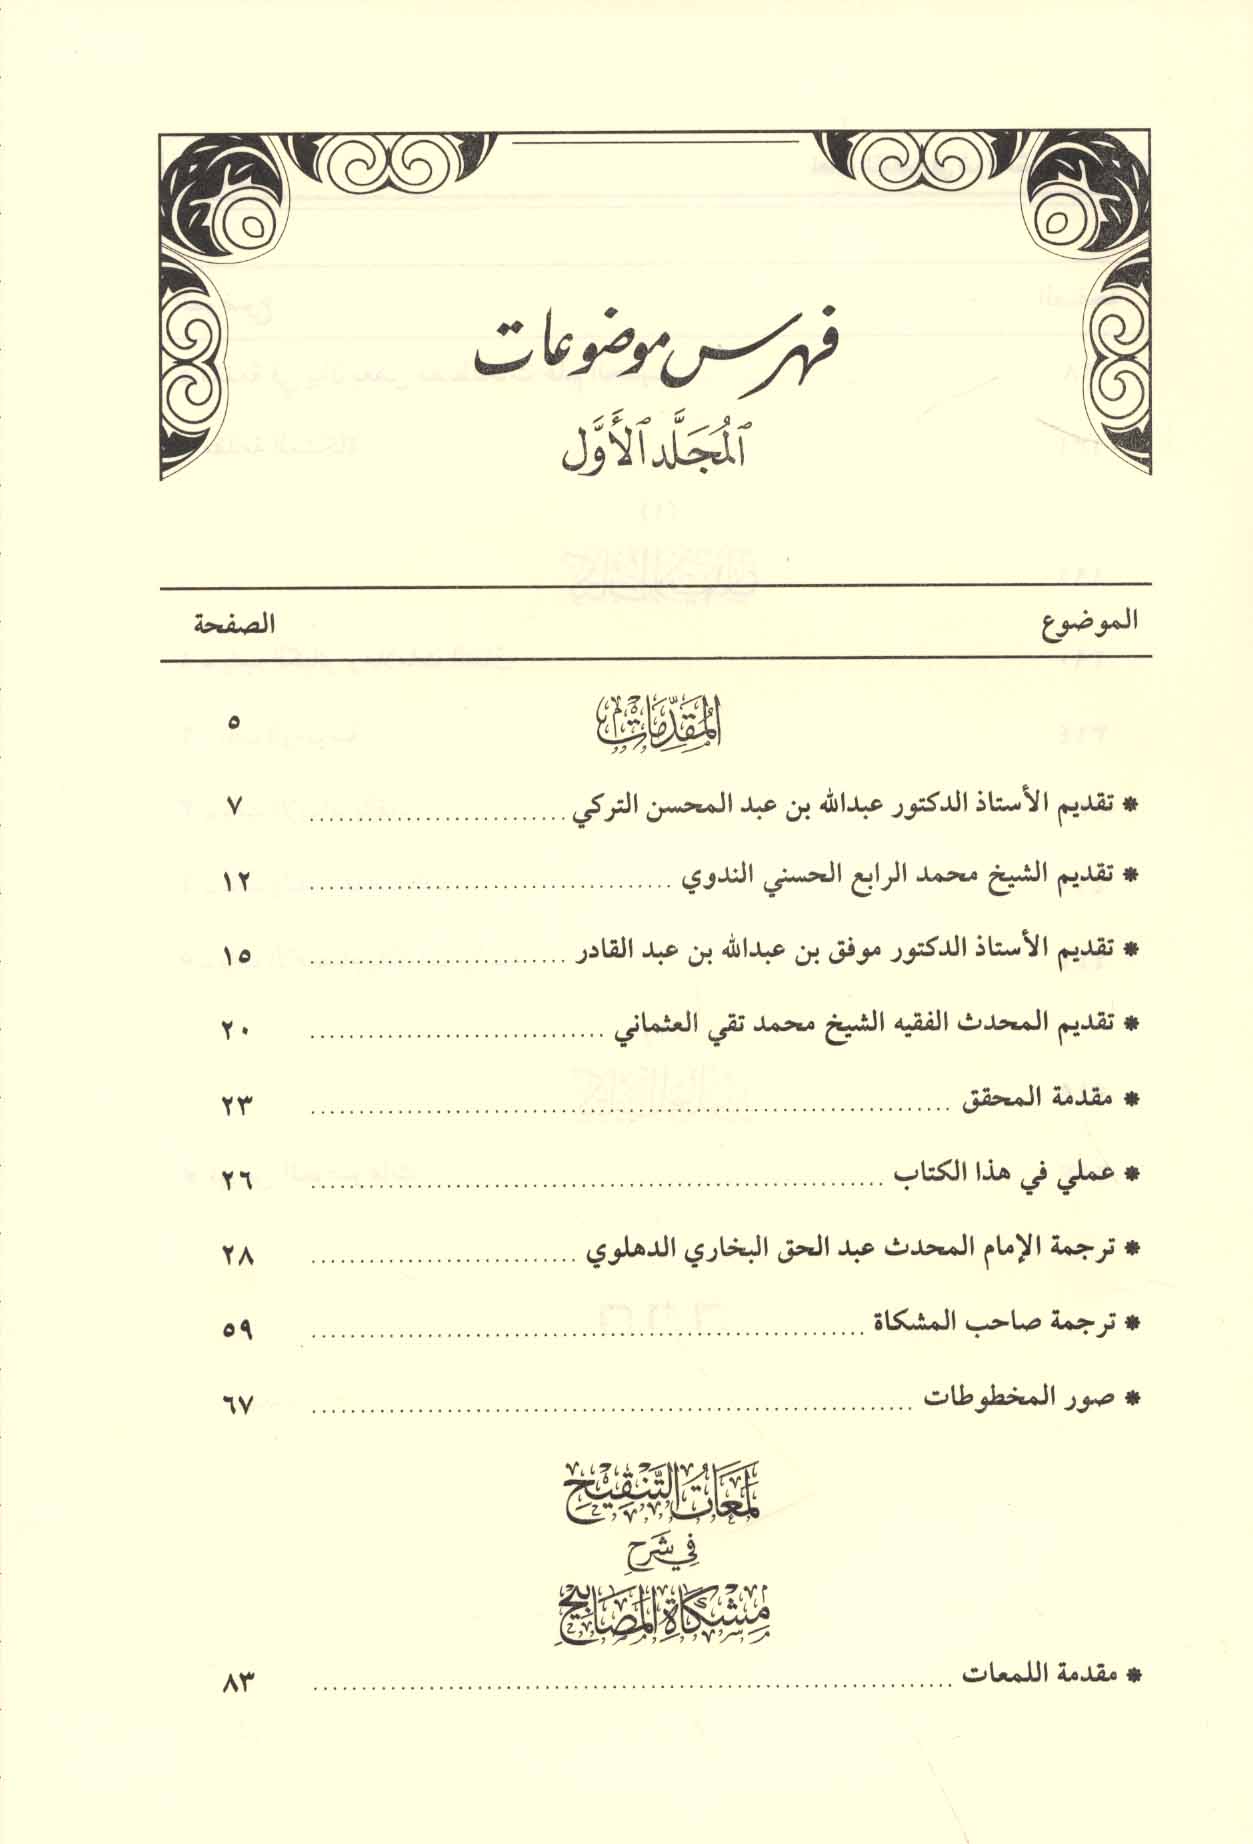 فهرس موضوعات
المُجَلَّد الأَوَّل
الموضوع الصفحة
المُقَدِّمَات ٥
* تقديم الأستاذ الدكتور عبدالله بن عبد المحسن التركي ............ ٧
* تقديم الشيخ محمد الرابع الحسني الندوي ............ ١٢
* تقديم الأستاذ الدكتور موفق بن عبدالله بن عبد القادر ............ ١٥
* تقديم المحدث الفقيه الشيخ محمد تقي العثماني ............ ٢٠
* مقدمة المحقق ............ ٢٣
* عملي في هذا الكتاب ............ ٢٦
* ترجمة الإمام المحدث عبد الحق البخاري الدهلوي ............ ٢٨
* ترجمة صاحب المشكاة ............ ٥٩
* صور المخطوطات ............ ٦٧
لَمَعَاتُ التَّنْقِيحِ
فِي شَرْحِ
مِشْكَاةِ المَصَابِيحِ
* مقدمة اللمعات ............ ٨٣